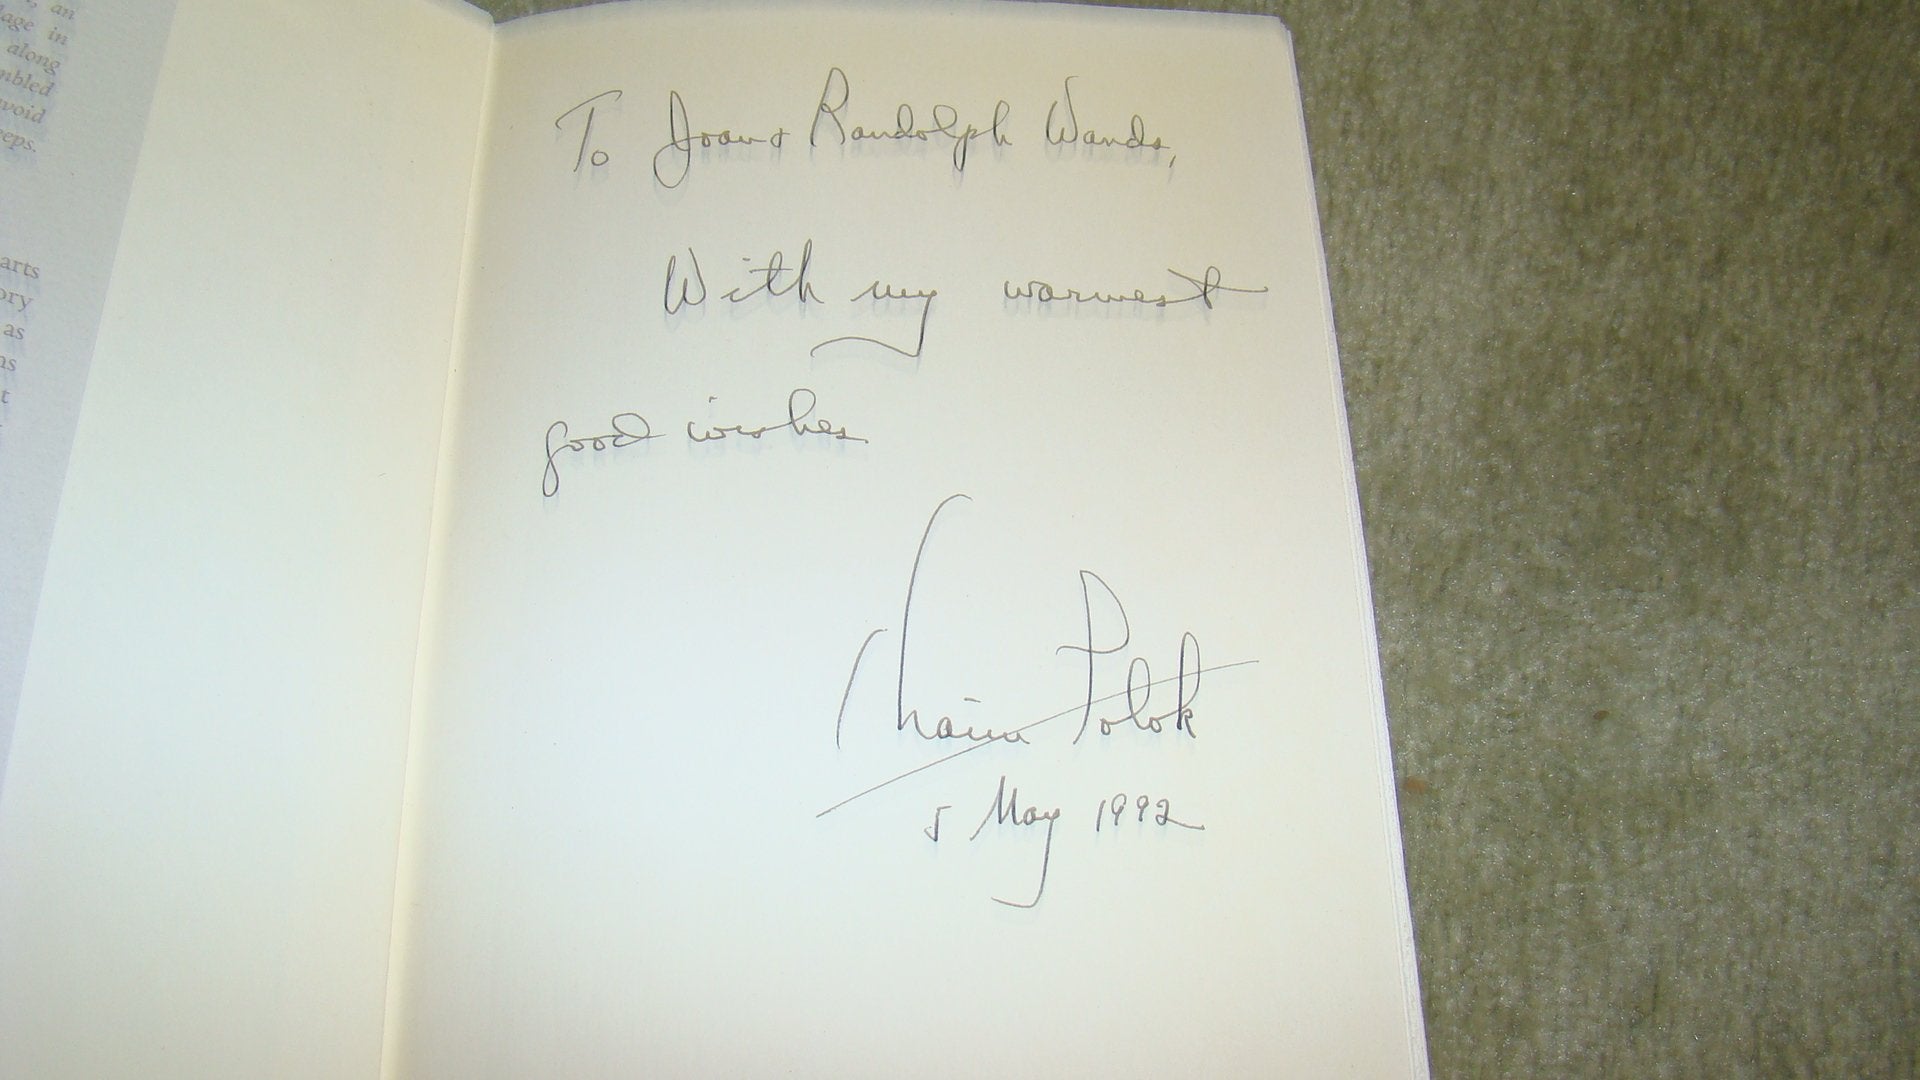 an
age in
along
mbled
void
eps.
arts
ory
as
ns
t
To Joan & Randolph Wands,
With my warmest
good wishes
Chaim Potok
5 May 1992